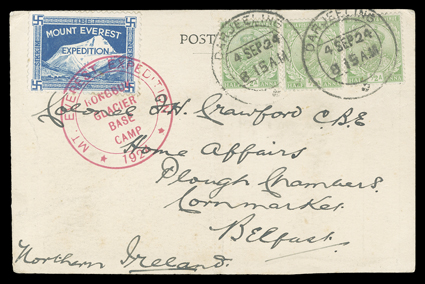 TIBET
SIKKIM
MOUNT EVEREST
EXPEDITION
POST
DARJEELING
4 SEP 24
8.15 AM
DARJEELING
4 SEP 24
8.15 AM
MT. EVEREST EXPEDITION
RONGBUK
GLACIER
BASE
CAMP
Colonel H. Crawford C.B.E
Home Affairs
Plough Chambers
Cornmarket
Belfast.
Northern Ireland.